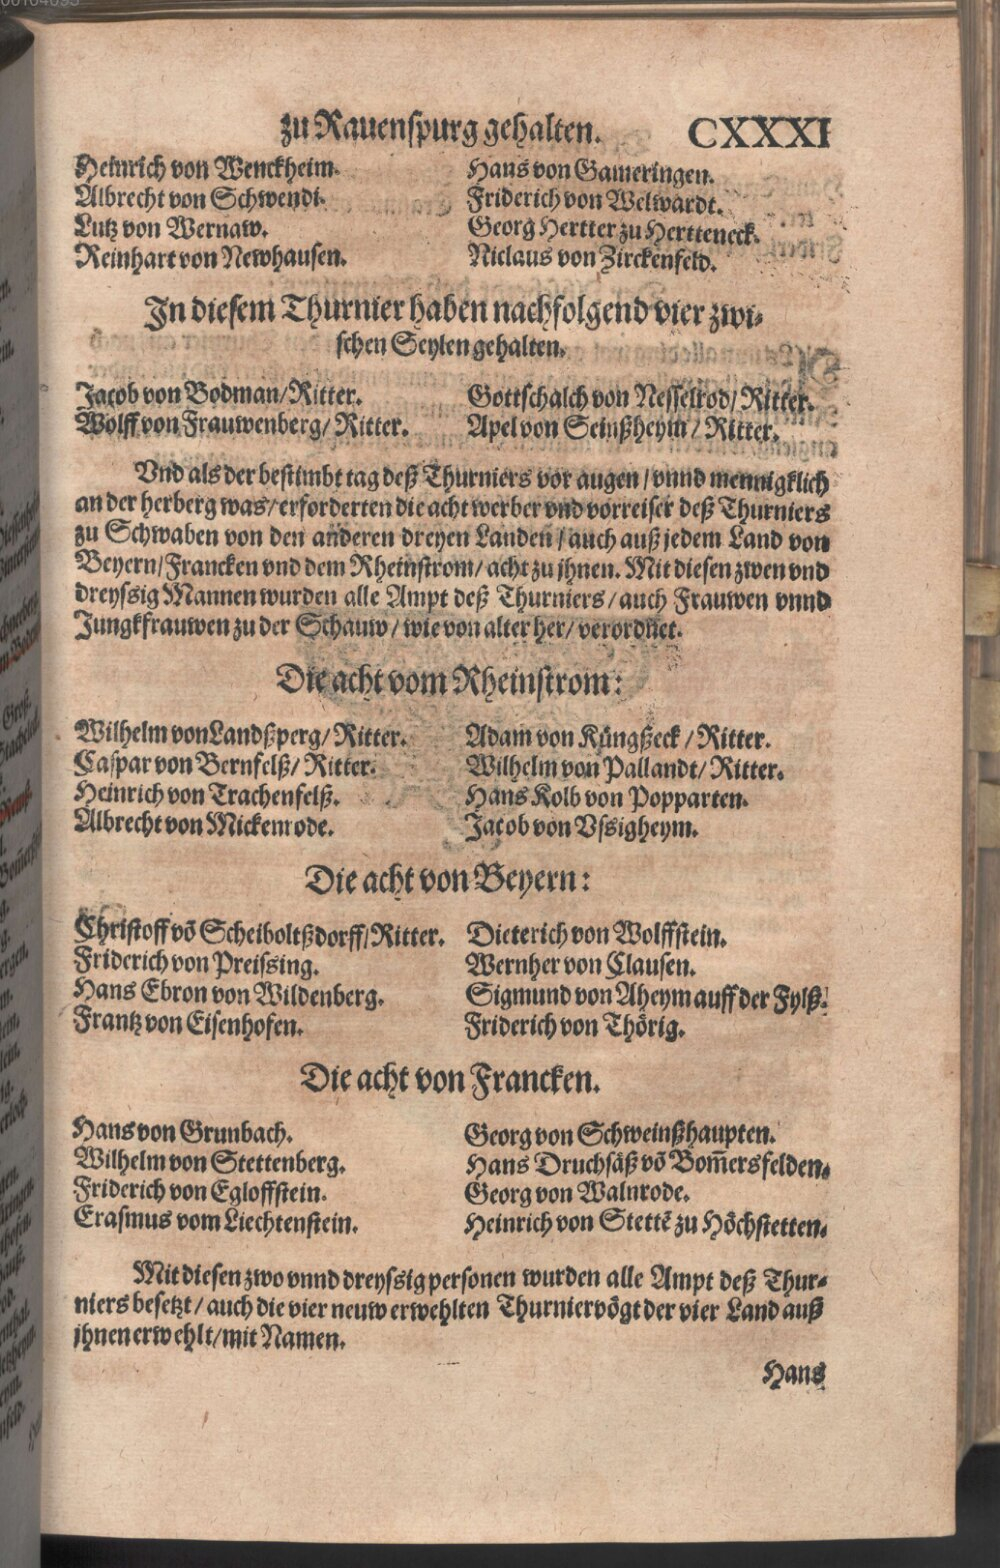 zu Rauenspurg gehalten. CXXXI
Heinrich von Wenckheim.
Albrecht von Schwendi.
Lutz von Wernaw.
Reinhart von Newhausen.
Hans von Gameringen.
Friderich von Welwardt.
Georg Hertter zu Hertteneck.
Niclaus von Zirckenfeld.
In diesem Thurnier haben nachfolgend vier zwi-
schen Seylen gehalten.
Jacob von Bodman/Ritter.
Wolff von Frauwenberg/ Ritter.
Gottschalch von Nesselrod/ Ritter.
Apel von Seinßheym/ Ritter.
Vnd als der bestimbt tag deß Thurniers vor augen/ vnnd mennigklich
an der herberg was/ erforderten die acht werber vnd vorreiser deß Thurniers
zu Schwaben von den anderen dreyen Landen/ auch auß jedem Land von
Beyern/Francken vnd dem Rheinstrom/ acht zu jhnen. Mit diesen zwen vnd
dreyssig Mannen wurden alle Ampt deß Thurniers/ auch Frauwen vnnd
Jungkfrauwen zu der Schauw/ wie von alter her/ verordnet.
Die acht vom Rheinstrom:
Wilhelm von Landßperg/ Ritter.
Caspar von Bernfelß/ Ritter.
Heinrich von Trachenfelß.
Albrecht von Mickenrode.
Adam von Küngßeck/ Ritter.
Wilhelm von Pallandt/ Ritter.
Hans Kolb von Popparten.
Jacob von Vssigheym.
Die acht von Beyern:
Christoff võ Scheiboltßdorff/Ritter.
Friderich von Preissing.
Hans Ebron von Wildenberg.
Frantz von Eisenhofen.
Dieterich von Wolffstein.
Wernher von Clausen.
Sigmund von Aheym auff der Fylß.
Friderich von Thörig.
Die acht von Francken.
Hans von Grunbach.
Wilhelm von Stettenberg.
Friderich von Egloffstein.
Erasmus vom Liechtenstein.
Georg von Schweinßhaupten.
Hans Druchsäß võ Bom̄ersfelden.
Georg von Walnrode.
Heinrich von Stettẽ zu Höchstetten.
Mit diesen zwo vnnd dreyssig personen wurden alle Ampt deß Thur-
niers besetzt/ auch die vier neuw erwehlten Thurniervögt der vier Land auß
jhnen erwehlt/mit Namen.
Hans